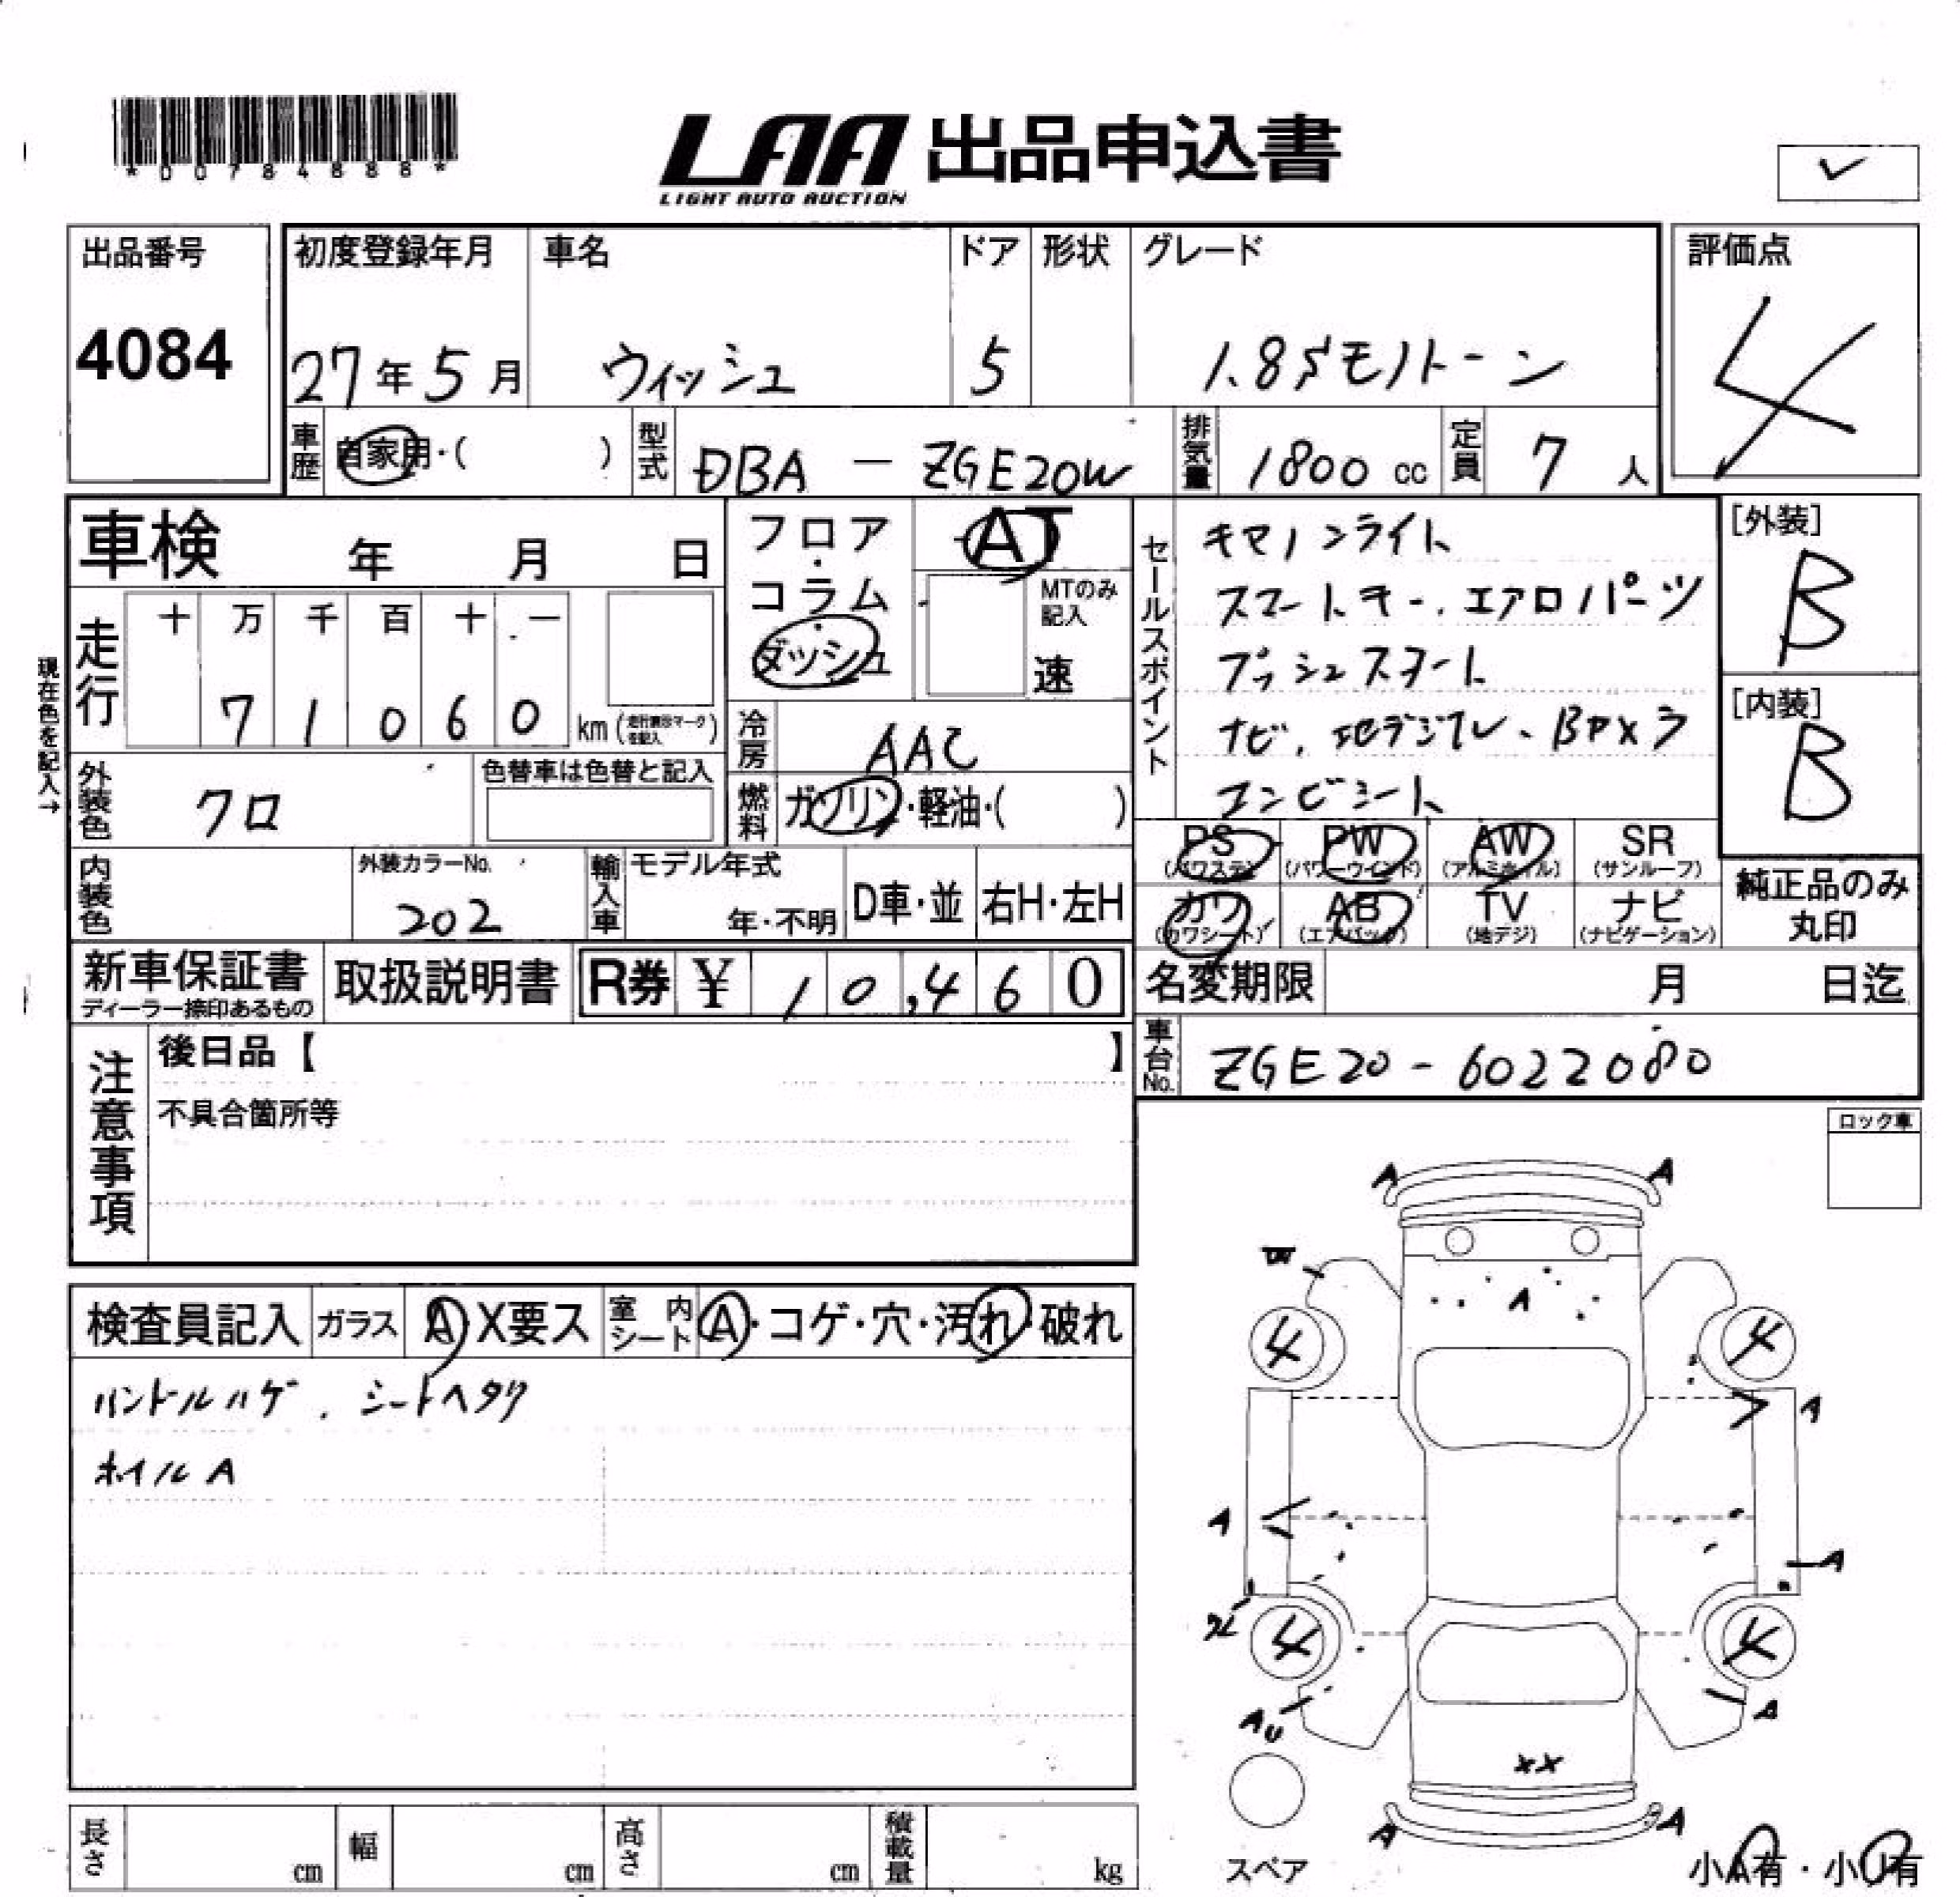 *00784888*
LAA 出品申込書
LIGHT AUTO AUCTION
出品番号
4084
初度登録年月 車名 ドア 形状 グレード
27年5月 ウィッシュ 5 1.8Sモノトーン
評価点
4
車歴 自家用・( ) 型式 DBA － ZGE20W 排気量 1800 cc 定員 7 人
車検 年 月 日
フロア・コラム・ダッシュ
AT
MTのみ記入
速
現在色を記入→
走行 十 万 千 百 十 一
7 1 0 6 0 km
冷房 AAC
外装色 クロ 色替車は色替と記入
燃料 ガソリン・軽油・( )
内装色 外装カラーNo. 202
輸入車 モデル年式 年・不明 D車・並 右H・左H
セールスポイント
キセノンライト
スマートキー、エアロパーツ
プッシュスタート
ナビ、地デジTV、Bカメラ
コンビシート
[外装]
B
[内装]
B
PS (パワステ) PW (パワーウインド) AW (アルミホイル) SR (サンルーフ)
カワ (カワシート) AB (エアバック) TV (地デジ) ナビ (ナビゲーション)
純正品のみ丸印
新車保証書 ディーラー捺印あるもの
取扱説明書
R券 ¥ 10,460
名変期限 月 日迄
車台No. ZGE20-6022080
注意事項
後日品【 】
不具合箇所等
ロック車
検査員記入 ガラス A・X要ス 室内シート A・コゲ・穴・汚れ・破れ
ハンドルハゲ、シートヘタリ
ホイルA
A A
W
A
4 4
A
A
A
4 4
AU A
XX
A A
スペア
小A有・小U有
長さ cm 幅 cm 高さ cm 積載量 kg